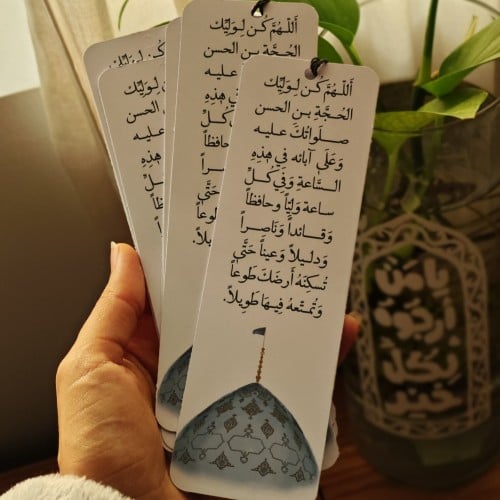 اَللّهُمَّ كُن لِوَلِيِّك
الحُجَّةِ بنِ الحسن
صلَواتُكَ عليه
وَعَلَى آبائه في هٰذِهِ
السَّاعةِ وَفِي كُلِّ
ساعة وَلِيّاً وحافظاً
وَقائداً وَناصراً
وَدليلاً وَعيناً حَتَّى
تُسكِنَهُ أَرضَكَ طَوعاً
وَتُمتّعهُ فِيهَا طَوِيلاً.
اَللّهُمَّ كُن لِوَلِيِّك
الحُجَّةِ بنِ الحسن
عليه
هٰذِهِ
اَللّهُمَّ كُن لِوَلِيِّك
الحُجَّةِ بنِ الحسن
عليه
هٰذِهِ
كُلِّ
يامَن
أرجوه
لِكُلِّ
خير